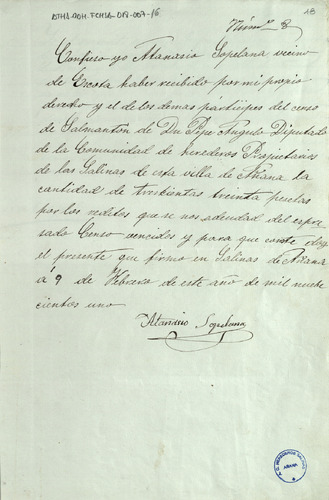 ATHA.DOH.FCHSA.019-007-16
18
Núm.º 8
Confieso yo Atanasio Sopelana vecino
de Escota haber recibido por mi propio
derecho y el de los demas partícipes del censo
de Salmantón de Dn Pepe Angulo Diputado
de la Comunidad de herederos Propietarios
de las Salinas de esta villa de Añana la
cantidad de trescientas treinta pesetas
por los reditos que se nos adeudan del expre-
sado Censo vencidos y para que conste doy
el presente que firmo en Salinas de Añana
á 9 de Febrero de este año de mil nueve
cientos uno
Atanasio Sopelana
AÑANA